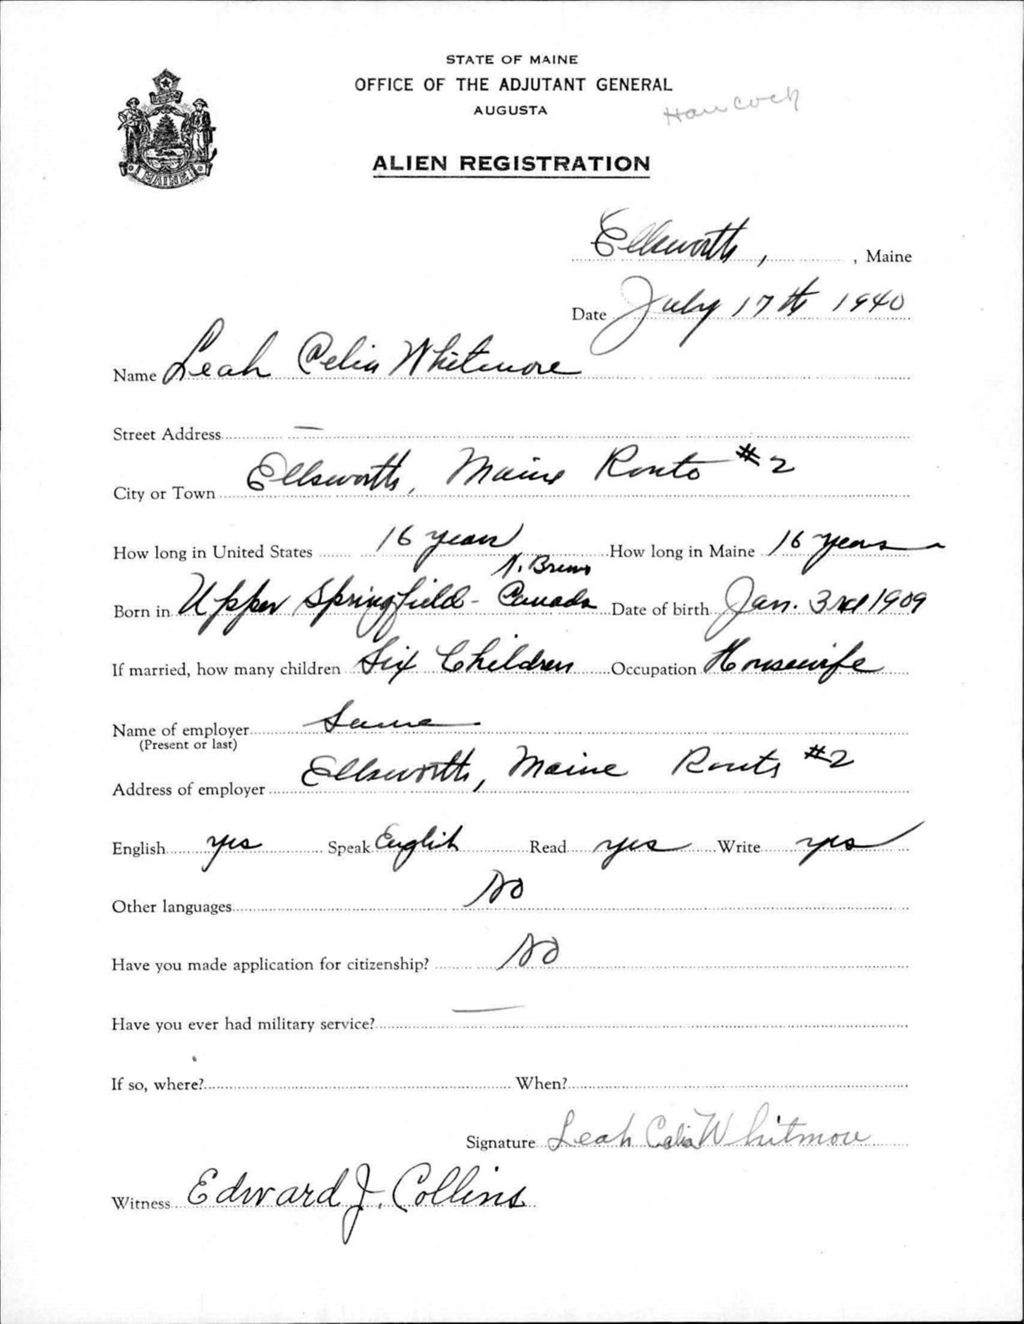 STATE OF MAINE
OFFICE OF THE ADJUTANT GENERAL
AUGUSTA
Hancock
MAINE
ALIEN REGISTRATION
Ellsworth, , Maine
Date July 17th 1940
Name Leah Celia Whitmore
Street Address —
City or Town Ellsworth, Maine Route #2
How long in United States 16 years How long in Maine 16 years
N. Bruns
Born in Upper Springfield - Canada Date of birth Jan. 3rd 1909
If married, how many children Six Children Occupation Housewife
Name of employer Same
(Present or last)
Address of employer Ellsworth, Maine Route #2
English yes Speak English Read yes Write yes
Other languages No
Have you made application for citizenship? No
Have you ever had military service? —
If so, where? When?
Signature Leah Celia Whitmore
Witness Edward J. Collins